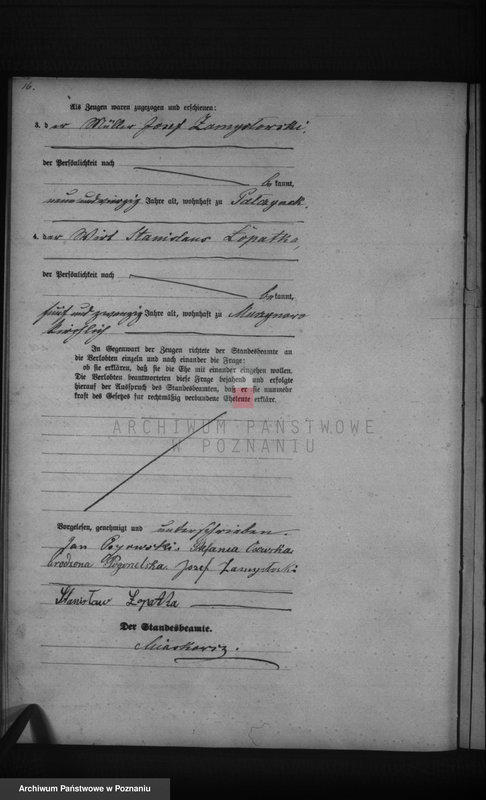 16.
Als Zeugen waren zugezogen und erschienen:
3. der Müller Josef Zamyslowski,
der Persönlichkeit nach
be kannt,
neun und vierzig Jahre alt, wohnhaft zu
4. der Wirt Stanislaus Lopatka,
der Persönlichkeit nach
be kannt,
fünf und zwanzig Jahre alt, wohnhaft zu
Kirchlich
In Gegenwart der Zeugen richtete der Standesbeamte an
die Verlobten einzeln und nach einander die Frage:
ob sie erklären, daß sie die Ehe mit einander eingehen wollen.
Die Verlobten beantworteten diese Frage bejahend und erfolgte
hierauf der Ausspruch des Standesbeamten, daß er sie nunmehr
kraft des Gesetzes für rechtmäßig verbundene Eheleute erkläre.
ARCHIWUM PAŃSTWOWE
W POZNANIU
Vorgelesen, genehmigt und unterschrieben.
Jan Stefania
Josef
Stanisław Łopatka
Der Standesbeamte.
Archiwum Państwowe w Poznaniu